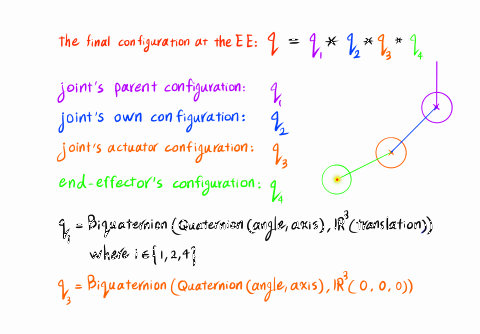 The final configuration at the EE: q = q₁ * q₂ * q₃ * q₄
joint's parent configuration: q₁
joint's own configuration: q₂
joint's actuator configuration: q₃
end-effector's configuration: q₄
qᵢ = Biquaternion (Quaternion (angle, axis), IR³(translation))
where i ∈ {1, 2, 4}
q₃ = Biquaternion (Quaternion (angle, axis), IR³( 0, 0, 0))